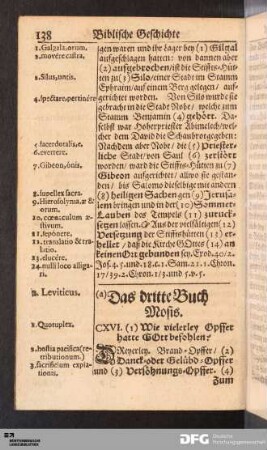 138 Biblische Geschichte
1. Galgala, orum.
2. movere castra.
3. Silus, untis.
4. spectare, pertinere
5. sacerdotalis, e.
6. evertere.
7. Gibeon, ônis.
8. supellex sacra.
9. Hierosolyma, æ &
orum.
10. cœnaculum æ-
stivum.
11. seponere.
12. translatio & tra-
latio.
13. elucére.
14. nulli loco affigi-
gen waren und ihr Läger bey (1) Gilgal
aufgeschlagen hatten: von dannen aber
(2) aufgebrochen/ ist die Stiffts-Hüt-
ten zu (3) Silo/ einer Stadt im Stamm
Ephraim/ auf einem Berg gelegen/ auf-
gerichtet worden. Von Silo wurde sie
gebracht in die Stadt Nobe/ welche zum
Stamm Benjamin (4) gehört. Da-
selbst war Hoherpriester Abimelech/ wel-
cher dem David die Schaubrod gegeben:
Nachdem aber Nobe/ die (5) Priester-
liche Stadt/ von Saul (6) zerstört
worden/ ward die Stiffts-Hütten zu (7)
Gibeon aufgerichtet/ allwo sie gestan-
den/ bis Salomo dieselbige mit andern
(8) heiligen Sachen gen (9) Jerusa-
lem bringen und in der (10) Sommer-
Lauben des Tempels (11) zuruck-
setzen lassen. Aus der vielfältigen (12)
Versetzung der Stiffts-hütten (13) er-
hellet/ daß die Kirche GOttes (14) an
keinen Ort gebunden sey. Exod. 40/2.
Jos. 4. v. 5. und 18. c. 1. Sam. 21. 1. Chron.
17/39. 2. Chron. 1/3. und 5. v. 5.
a. Leviticus.
1. Quotuplex.
2. hostia pacifica (re-
tributionum.)
3. sacrificium expia-
tionis.
(a) Das dritte Buch
Mosis.
CXVI. (1) Wie vielerley Opffer
hatte GOtt befohlen?
DReyerley. Brand-Opffer/ (2)
Danck- oder Gelübd-Opffer
und (3) Versöhnungs-Opffer. (4)
Zum
SLUB
DRESDEN
DFG Deutsche
Forschungsgemeinschaft